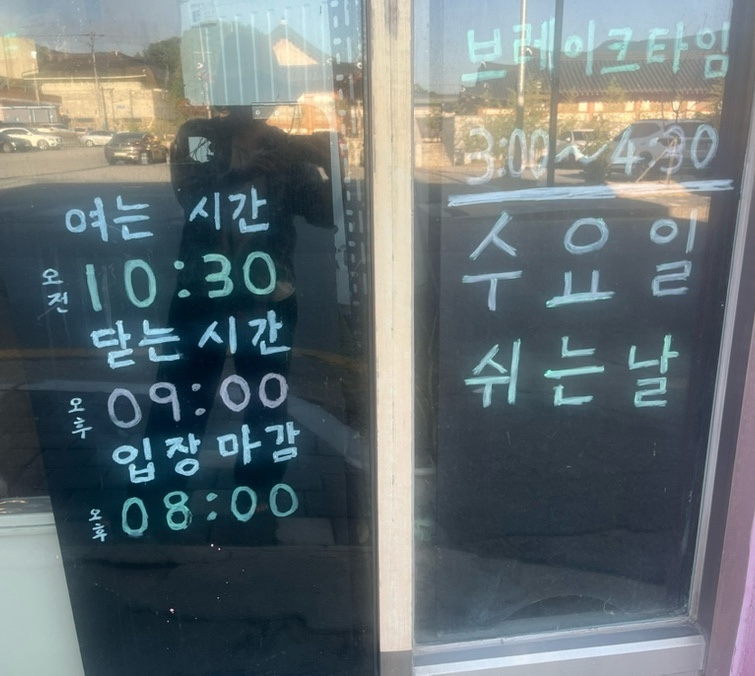 여는 시간
오전 10:30
닫는 시간
오후 09:00
입장 마감
오후 08:00
브레이크타임
3:00~4:30
수요일
쉬는날